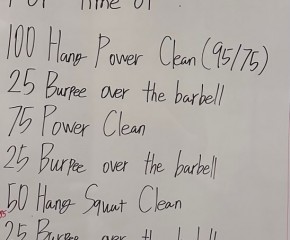 100 Hang Power Clean (95/75)
25 Burpee over the barbell
75 Power Clean
25 Burpee over the barbell
50 Hang Squat Clean
25 Burpee over th